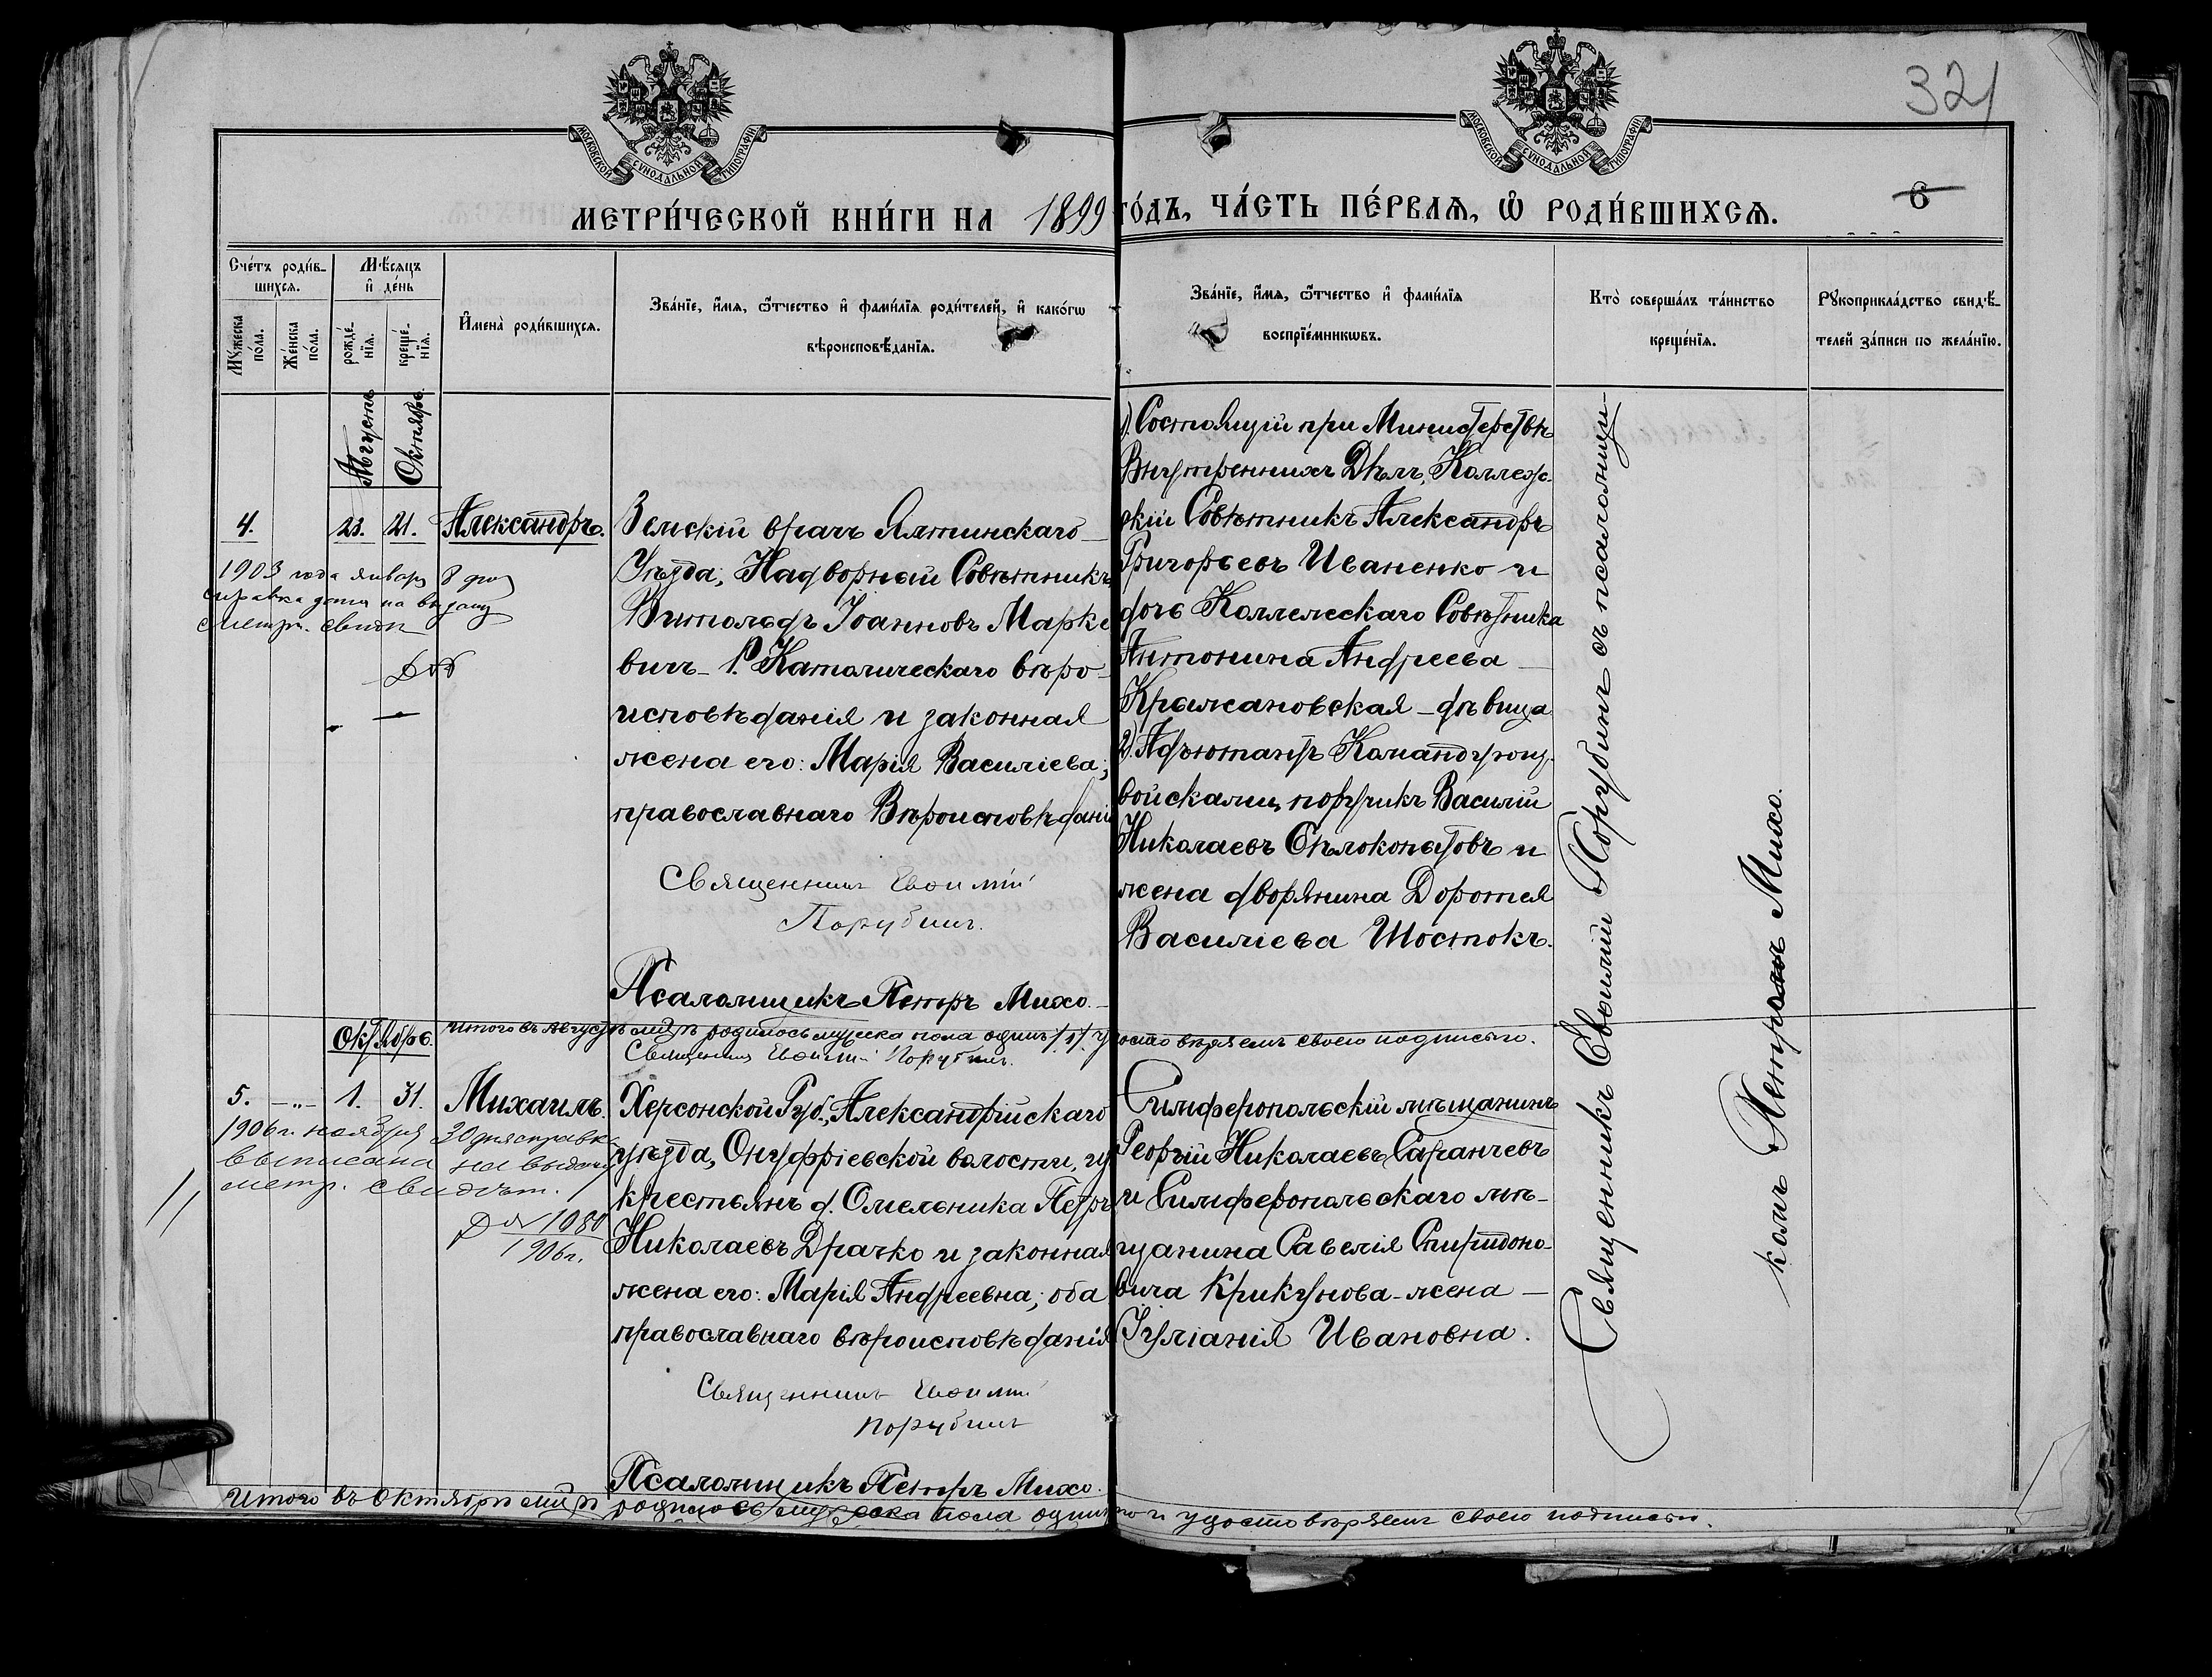 321
МОСКОВСКОЙ СѴНОДАЛЬНОЙ ТИПОГРАФІИ
МОСКОВСКОЙ СѴНОДАЛЬНОЙ ТИПОГРАФІИ
МЕТРИ́ЧЕСКОЙ КНИ́ГИ НА 1899 ГО́ДЪ, ЧА́СТЬ ПЕ́РВАѦ, Ѡ҆ РОДИ́ВШИХСѦ.
6
Сче́тъ роди́в-
шихсѧ.
Мꙋ́жеска по́ла.
Же́нска по́ла.
Мѣ́сѧцъ
и҆ де́нь
рожде́-
нїѧ.
креще́-
нїѧ.
И҆мена̀ роди́вшихсѧ.
Зва́нїе, и҆́мѧ, ѻ҆́тчество и҆ фами́лїѧ роди́телей, и҆ како́гѡ
вѣроисповѣ́данїѧ.
Зва́нїе, и҆́мѧ, ѻ҆́тчество и҆ фами́лїѧ
воспрїе́мникѡвъ.
Кто̀ соверша́лъ та́инство
креще́нїѧ.
Рꙋкоприкла́дство свидѣ́-
телей за́писи по жела́нїю.
Августъ
Октябрь
4.
23.
21.
Александръ.
1903 года январ 8 дня
справка дана на выдачу
метр. свидѣт
Земскій врачъ Ялтинскаго
Уѣзда, Надворный Совѣтникъ
Витольдъ Іоанновъ Марке
вичъ - Р. Католическаго вѣро-
исповѣданія и законная
жена его: Марія Василіева;
православнаго Вѣроисповѣданія
Священникъ Евѳимій
Порубинъ.
Псаломщикъ Петръ Михо.
1). Состоящій при Министерствѣ
Внутреннихъ Дѣлъ, Коллеж-
скій Совѣтникъ Александръ
Григорьевъ Иваненко и
дочь Коллежскаго Совѣтника
Антонина Андреева
Крыжановская - дѣвица
2). Адъютантъ Командующ.
войсками, поручикъ Василій
Николаевъ Бѣлокопытовъ и
жена дворянина Доротея
Василіева Шостокъ.
Священникъ Евѳимій Порубинъ съ псаломщи-
комъ Петромъ Михо.
Итого въ Августѣ мцѣ родилось мужеска пола одинъ /1/. удостовѣряемъ своею подписью.
Священникъ Евѳимій Порубинъ.
Октябрь.
5.
-"-
1.
31.
Михаилъ.
1906 г. ноября 30 дня справка
выписана на выдачу
метр. свидѣт.
№ 1080
1906 г.
Херсонской Губ., Александрійскаго
уѣзда, Онуфріевской волости,
крестьянъ д. Омельника Петръ
Николаевъ Драчко и законная
жена его: Марія Андреевна; оба
православнаго вѣроисповѣданія
Священникъ Евѳимій
Порубинъ
Псаломщикъ Петръ Михо.
Симферопольскій мѣщанинъ
Георгій Николаевъ Саранчевъ
и Симферопольскаго мѣ-
щанина Савелія Спиридоно-
вича Крикунова - жена
Іуліанія Ивановна.
Итого въ Октябрѣ мцѣ родилось мужеска пола одинъ удостовѣряемъ своею подписью.